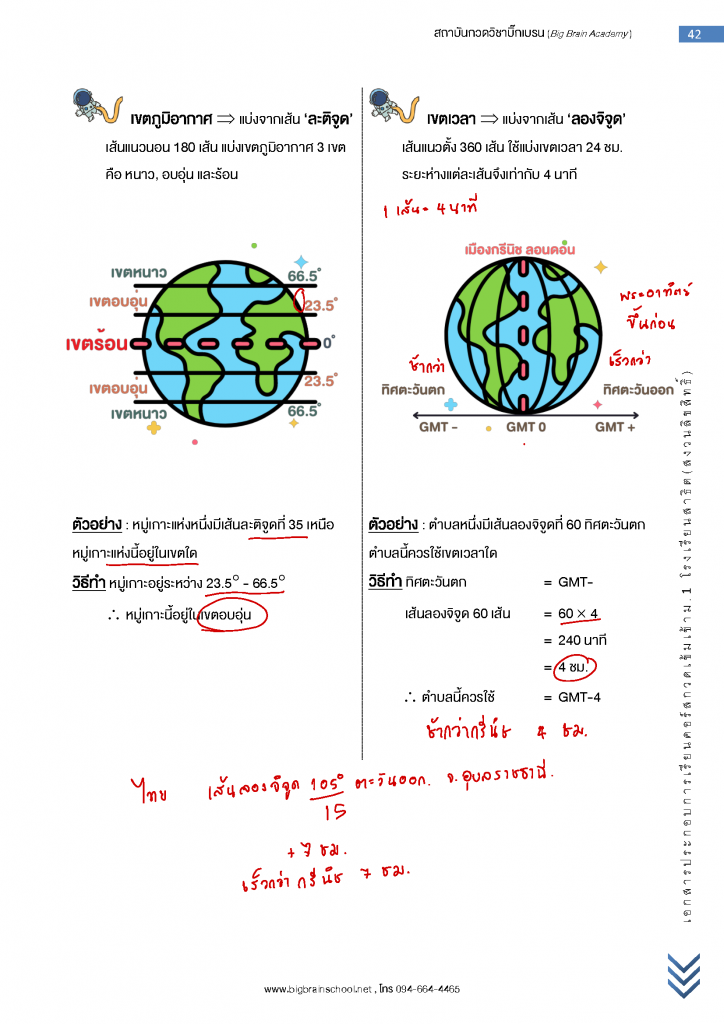 สถาบันกวดวิชาบิ๊กเบรน (Big Brain Academy)
42
เขตภูมิอากาศ ⟹ แบ่งจากเส้น ‘ละติจูด’
เส้นแนวนอน 180 เส้น แบ่งเขตภูมิอากาศ 3 เขต
คือ หนาว, อบอุ่น และร้อน
เขตหนาว
66.5°
เขตอบอุ่น
23.5°
เขตร้อน
0°
เขตอบอุ่น
23.5°
เขตหนาว
66.5°
ตัวอย่าง : หมู่เกาะแห่งหนึ่งมีเส้นละติจูดที่ 35 เหนือ
หมู่เกาะแห่งนี้อยู่ในเขตใด
วิธีทำ หมู่เกาะอยู่ระหว่าง 23.5° - 66.5°
∴ หมู่เกาะนี้อยู่ในเขตอบอุ่น
เขตเวลา ⟹ แบ่งจากเส้น ‘ลองจิจูด’
เส้นแนวตั้ง 360 เส้น ใช้แบ่งเขตเวลา 24 ชม.
ระยะห่างแต่ละเส้นจึงเท่ากับ 4 นาที
1 เส้น = 4 นาที
เมืองกรีนิช ลอนดอน
พระอาทิตย์
ขึ้นก่อน
ช้ากว่า
เร็วกว่า
ทิศตะวันตก
ทิศตะวันออก
GMT -
GMT 0
GMT +
ตัวอย่าง : ตำบลหนึ่งมีเส้นลองจิจูดที่ 60 ทิศตะวันตก
ตำบลนี้ควรใช้เขตเวลาใด
วิธีทำ ทิศตะวันตก = GMT-
เส้นลองจิจูด 60 เส้น = 60 × 4
= 240 นาที
= 4 ชม.
∴ ตำบลนี้ควรใช้ = GMT-4
ช้ากว่ากรีนิช 4 ชม.
ไทย เส้นลองจิจูด 105° ตะวันออก. จ.อุบลราชธานี.
15
+ 7 ชม.
เร็วกว่า กรีนิช 7 ชม.
เอกสารประกอบการเรียนคอร์สกวดเข้มเข้าม.1 โรงเรียนสาธิต(สงวนลิขสิทธิ์)
www.bigbrainschool.net , โทร 094-664-4465